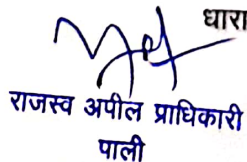 धारा
राजस्व अपील प्राधिकारी
पाली